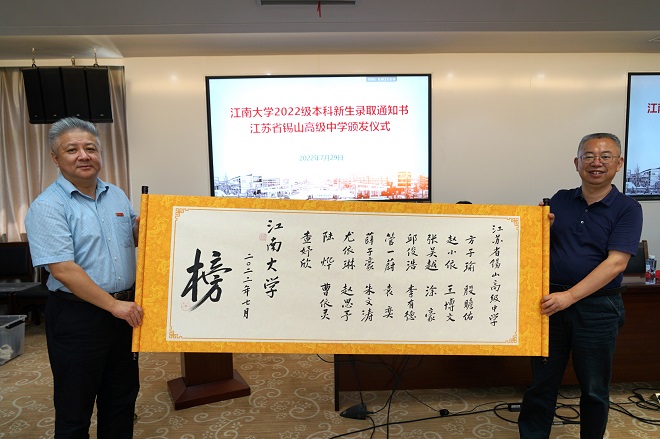 江南大学2022级本科新生录取通知书
江苏省锡山高级中学颁发仪式
2022年7月29日
江苏省锡山高级中学
方子瑜 殷瞻佑
赵小依 王博文
张昊越 涂豪
邱俊浩 李有德
管一蔚 袁奕
薛子豪 朱文涛
尤依琳 赵思予
陆烨 曹依灵
查妤欣
江南大学
二〇二二年七月
榜
江南
江